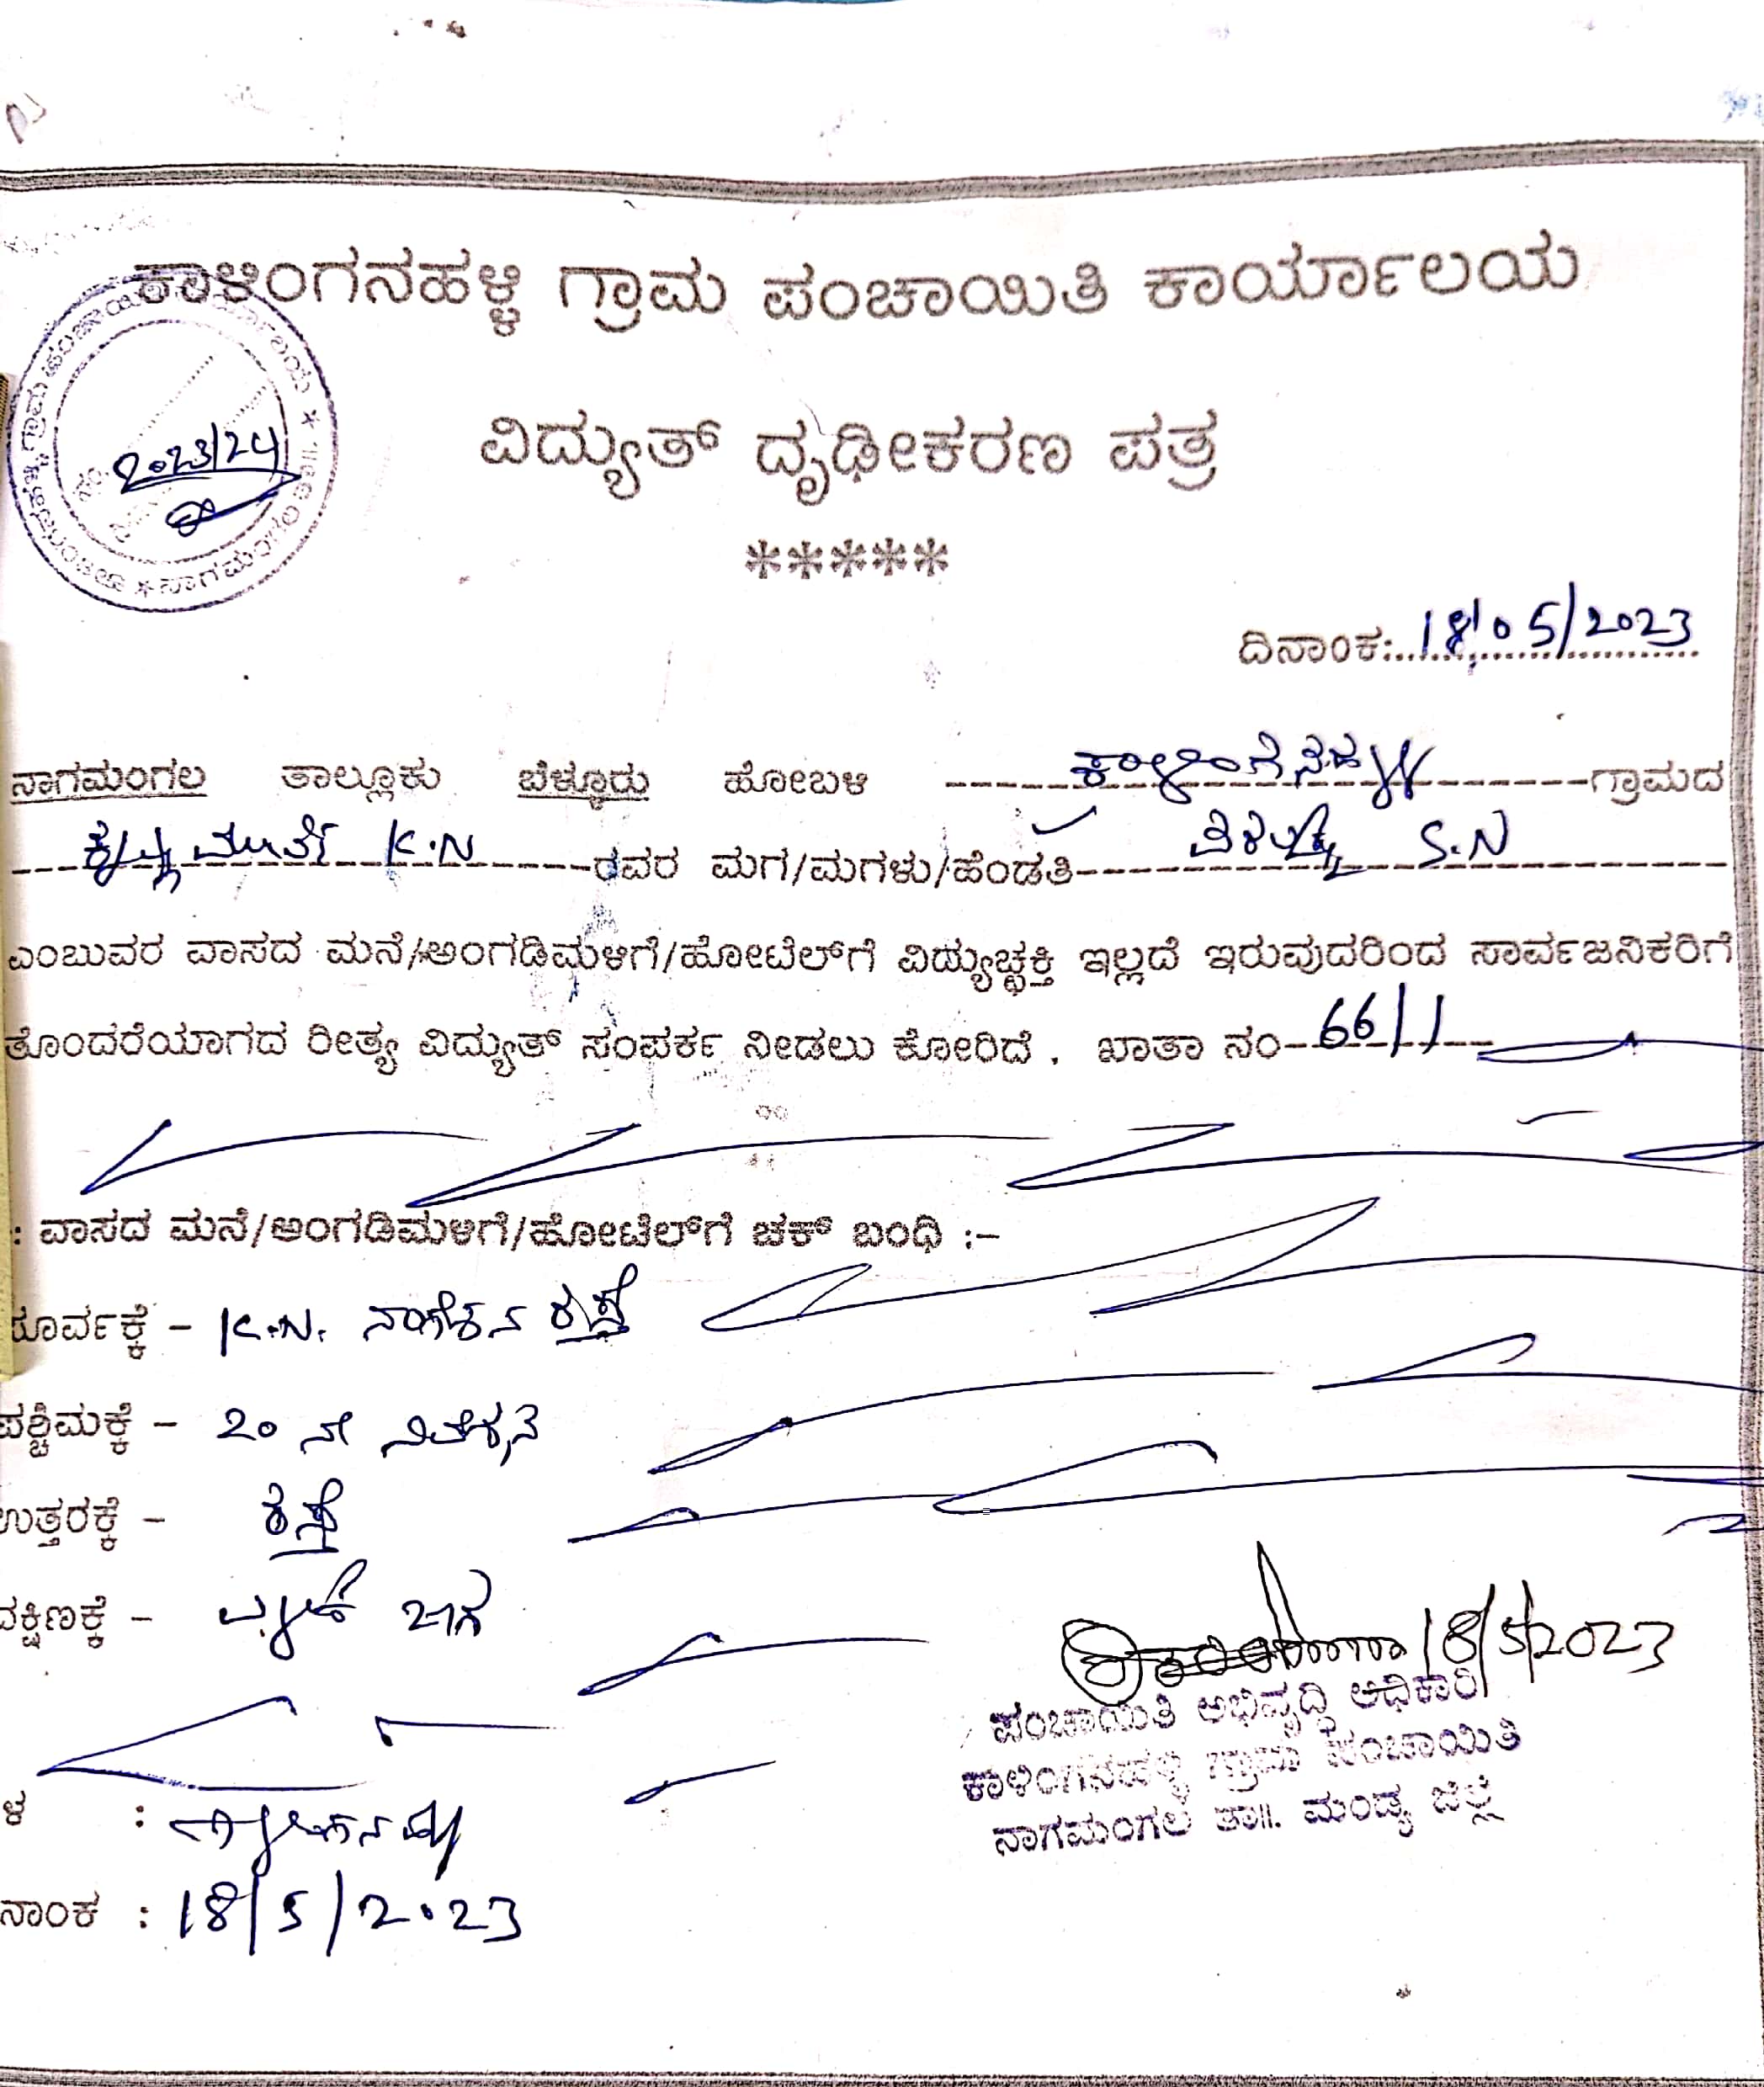 ಕಾಳಿಂಗನಹಳ್ಳಿ ಗ್ರಾಮ ಪಂಚಾಯಿತಿ ಕಾರ್ಯಾಲಯ
2023/24
ವಿದ್ಯುತ್ ದೃಢೀಕರಣ ಪತ್ರ
*****
ದಿನಾಂಕ:18/05/2023
ನಾಗಮಂಗಲ ತಾಲ್ಲೂಕು ಬೆಳ್ಳೂರು ಹೋಬಳಿ ಕಾಳಿಂಗನಹಳ್ಳಿ ಗ್ರಾಮದ
K.N ರವರ ಮಗ/ಮಗಳು/ಹೆಂಡತಿ S.N
ಎಂಬುವರ ವಾಸದ ಮನೆ/ಅಂಗಡಿಮಳಿಗೆ/ಹೋಟೆಲ್‌ಗೆ ವಿದ್ಯುಚ್ಛಕ್ತಿ ಇಲ್ಲದೆ ಇರುವುದರಿಂದ ಸಾರ್ವಜನಿಕರಿಗೆ
ತೊಂದರೆಯಾಗದ ರೀತ್ಯ ವಿದ್ಯುತ್ ಸಂಪರ್ಕ ನೀಡಲು ಕೋರಿದೆ . ಖಾತಾ ನಂ-66/1
: ವಾಸದ ಮನೆ/ಅಂಗಡಿಮಳಿಗೆ/ಹೋಟೆಲ್‌ಗೆ ಚಕ್ ಬಂಧಿ :-
ಪೂರ್ವಕ್ಕೆ - K.N. ನಾಗೇಶನ ರಸ್ತೆ
ಪಶ್ಚಿಮಕ್ಕೆ - 20 ನೇ ನಿವೇಶನ
ಉತ್ತರಕ್ಕೆ - ರಸ್ತೆ
ದಕ್ಷಿಣಕ್ಕೆ - ಜಾಗ
18/5/2023
ಪಂಚಾಯಿತಿ ಅಭಿವೃದ್ಧಿ ಅಧಿಕಾರಿ
ಕಾಳಿಂಗನಹಳ್ಳಿ ಗ್ರಾಮ ಪಂಚಾಯಿತಿ
ನಾಗಮಂಗಲ ತಾ॥. ಮಂಡ್ಯ ಜಿಲ್ಲೆ
ಳ : ಕಾಳಿಂಗನಹಳ್ಳಿ
ನಾಂಕ : 18/5/2023